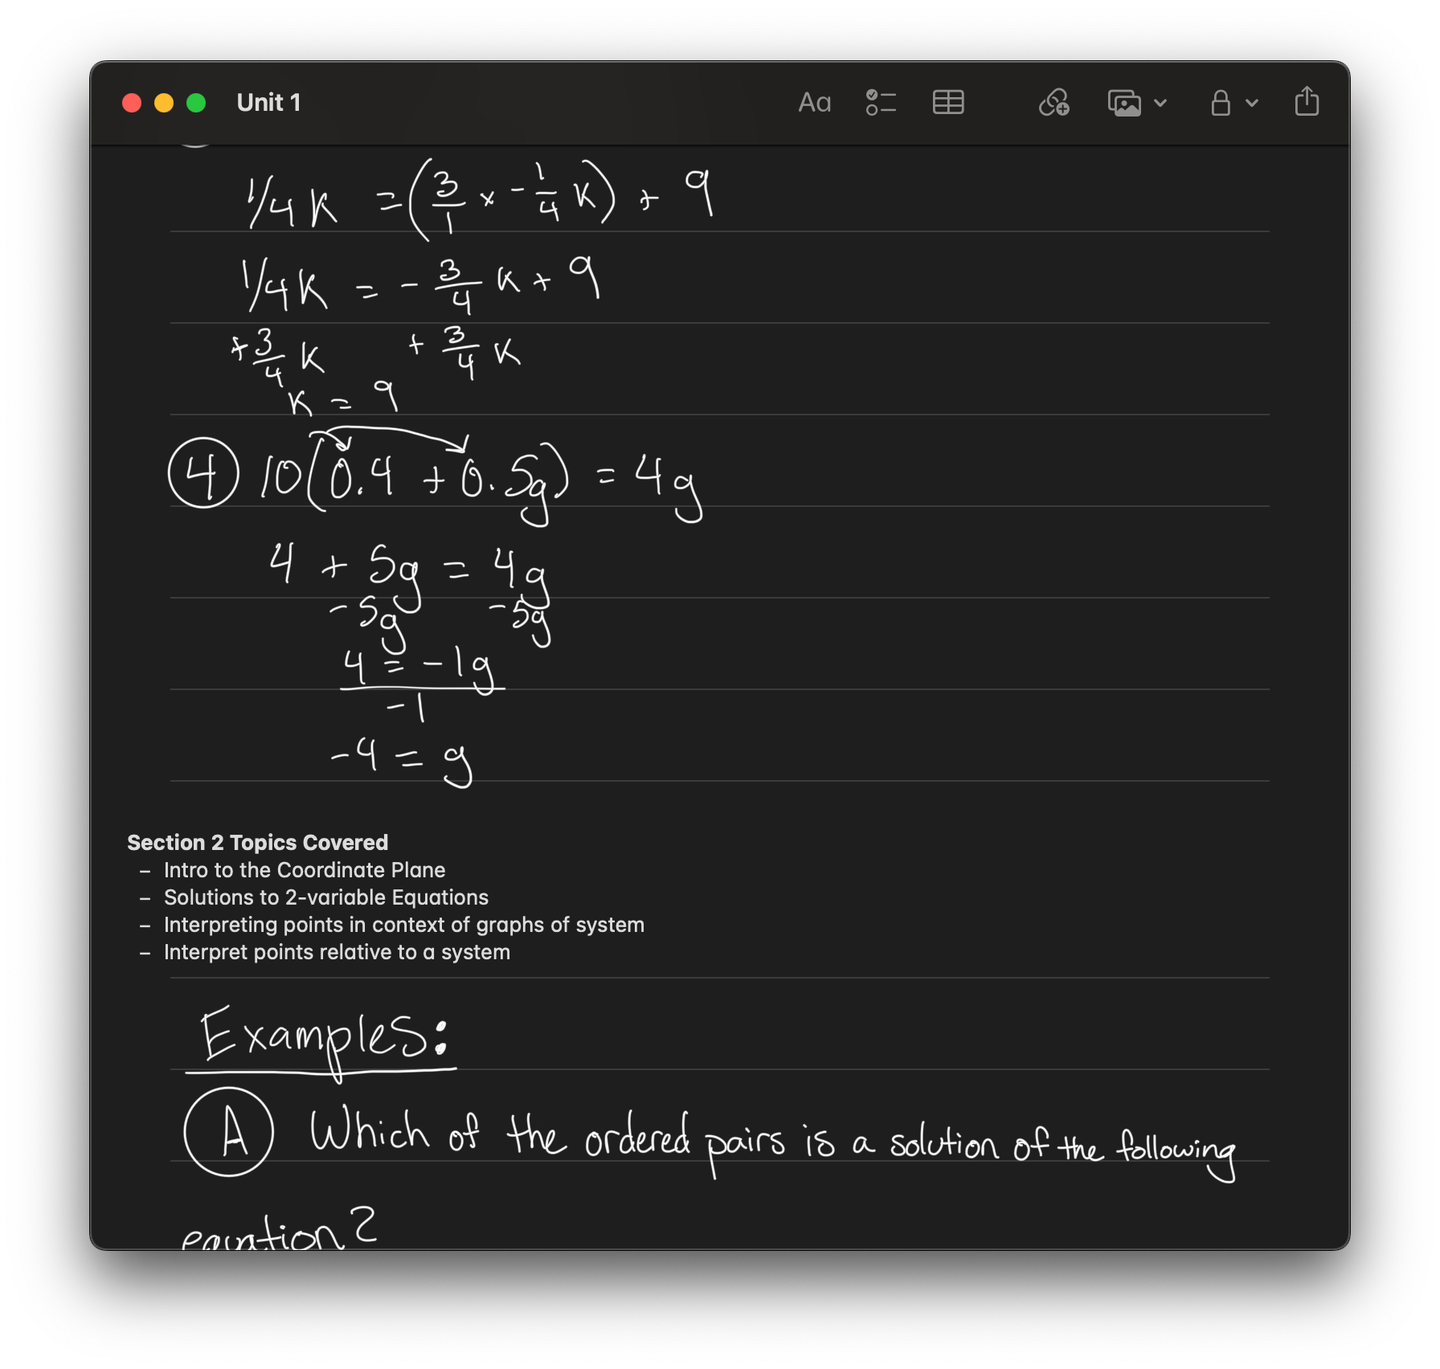 Unit 1
Aa
1/4 K = (3/1 x - 1/4 K) + 9
1/4 K = - 3/4 K + 9
+ 3/4 K + 3/4 K
K = 9
4 10(0.4 + 0.5g) = 4g
4 + 5g = 4g
-5g -5g
4 = -1g
-1
-4 = g
Section 2 Topics Covered
– Intro to the Coordinate Plane
– Solutions to 2-variable Equations
– Interpreting points in context of graphs of system
– Interpret points relative to a system
Examples:
A Which of the ordered pairs is a solution of the following
equation?